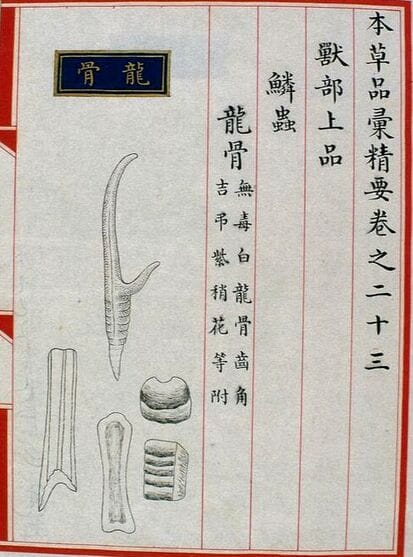 本草品彙精要卷之二十三
獸部上品
鱗蟲
龍骨
無毒白龍骨齒角
吉弔紫稍花等附
龍骨